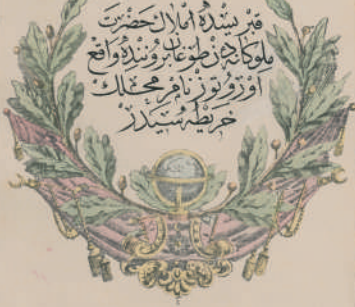 قبريسده املاك حضرت
ملوكانه دن طوغان بروننده واقع
نام محلك
خريطه سيدر